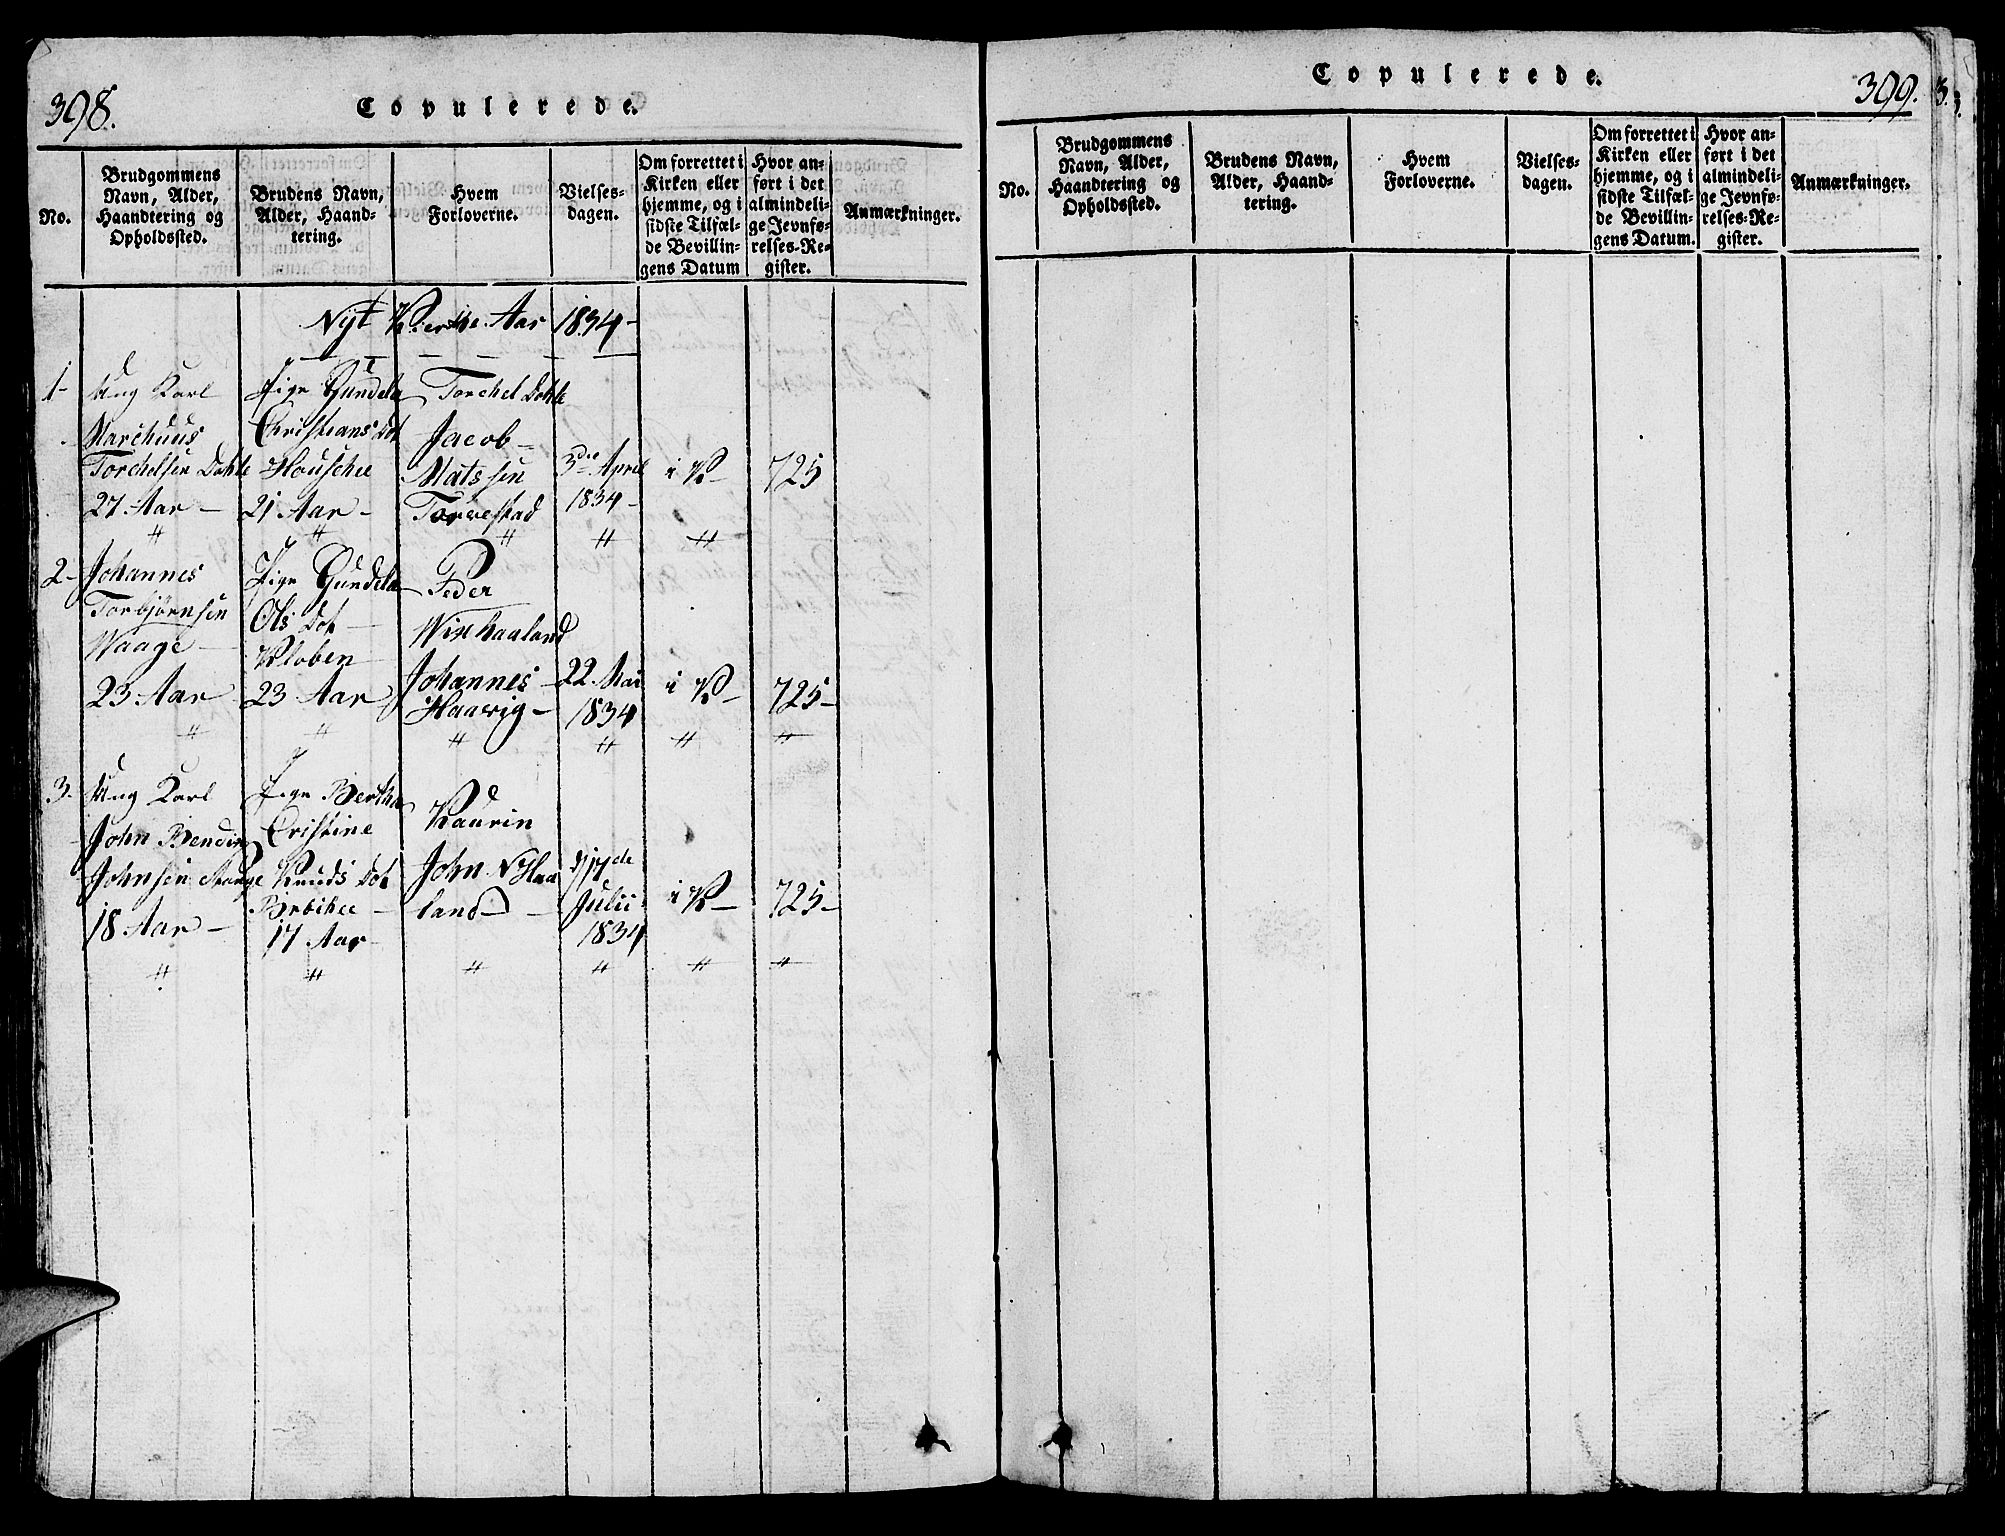 398.
Copulerede.
No.
Brudgommens
Navn, Alder,
Haandtering og
Opholdssted.
Brudens Navn,
Alder, Haand-
tering.
Hvem
Forloverne.
Vielses-
dagen.
Om forrettet i
Kirken eller
hjemme, og i
sidste Tilfæl-
de Bevillin-
gens Datum
Hvor an-
ført i det
almindeli-
ge Jevnfø-
relses-Re-
gister.
Anmærkninger.
Nyt Kierke Aar 1834-
1-
Ung Karl
Marchuus
Torchelsen Dahle
27 Aar -
Pige Gundela
Christians Dot
Houschee
21 Aar -
Torchel Dahle
Jacob-
Matssen
Torvestad
3die April
1834-
i K-
725
2-
Johannes
Torbjørnsen
Waage-
23 Aar
Pige Gundela
Ols Dot
Kloben
23 Aar
Peder
Wixhaaland
Johannes-
Haavig-
22 Mai
1834
i K-
725-
3.
Ung Karl
John Bendix
Johnsen Stange
18 Aar -
Pige Bertha
Cristine
Knuds Dot
17 Aar-
Kaurin
John
land
17de
Julii
1834
i K-
725-
Copulerede.
399.
No.
Brudgommens
Navn, Alder,
Haandtering og
Opholdssted.
Brudens Navn,
Alder, Haand-
tering.
Hvem
Forloverne.
Vielses-
dagen.
Om forrettet i
Kirken eller
hjemme, og i
sidste Tilfæl-
de Bevillin-
gens Datum.
Hvor an-
ført i det
almindeli-
ge Jevnfø-
relses-Re-
gister.
Anmærkninger.